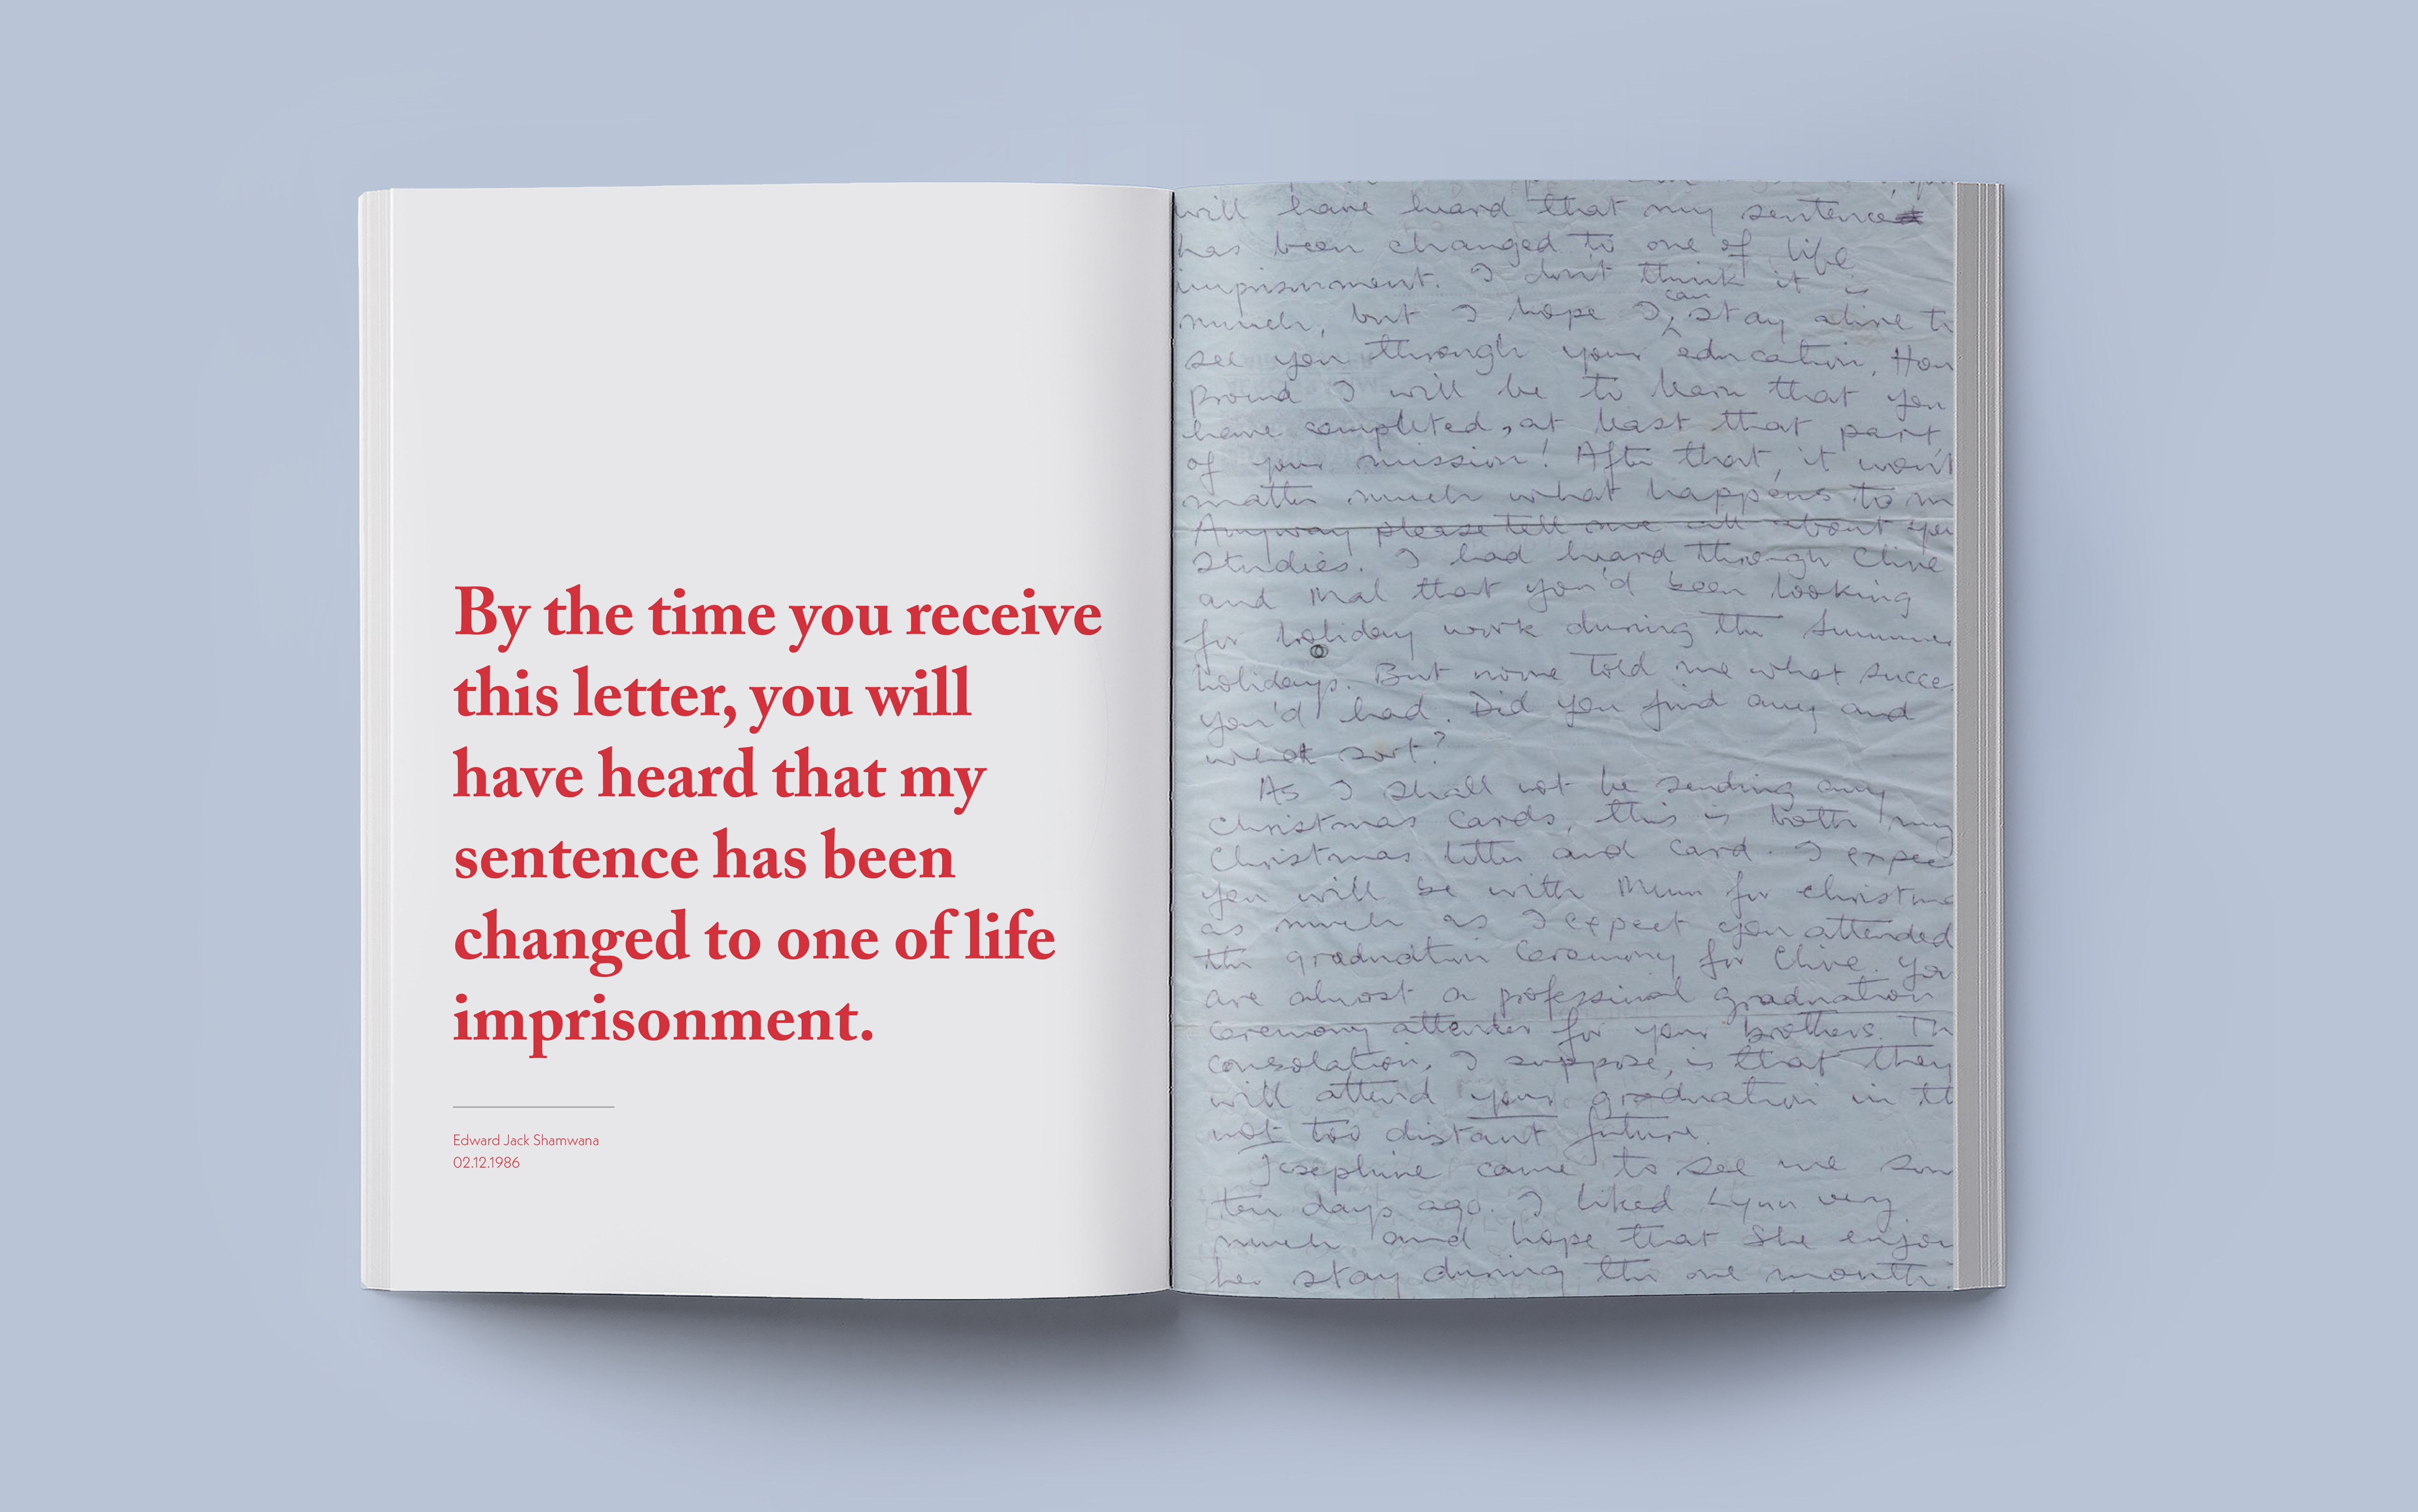 By the time you receive
this letter, you will
have heard that my
sentence has been
changed to one of life
imprisonment.
Edward Jack Shamwana
02.12.1986
will have heard that my sentence
has been changed to one of life
imprisonment. I don't think it is
much, but I hope I can stay alive to
see you through your education. How
proud I will be to learn that you
have completed, at least that part,
of your mission! After that, it won't
matter much what happens to m
Anyway please tell me all about you
studies. I had heard through Clive
and Mal that you'd been looking
for holiday work during the summer
holidays. But none told me what succe
you'd had. Did you find any and
what sort?
As I shall not be sending any
Christmas cards, this is both my
Christmas letter and card. I expec
you will be with Mum for christma
as much as I expect you attended
the graduation ceremony for Clive. You
are almost a professional graduation
ceremony attender for your brothers. Th
consolation, I suppose, is that they
will attend your graduation in th
not too distant future.
Josephine came to see me som
ten days ago. I liked Lynn very
much and hope that she enjoy
her stay during the one month